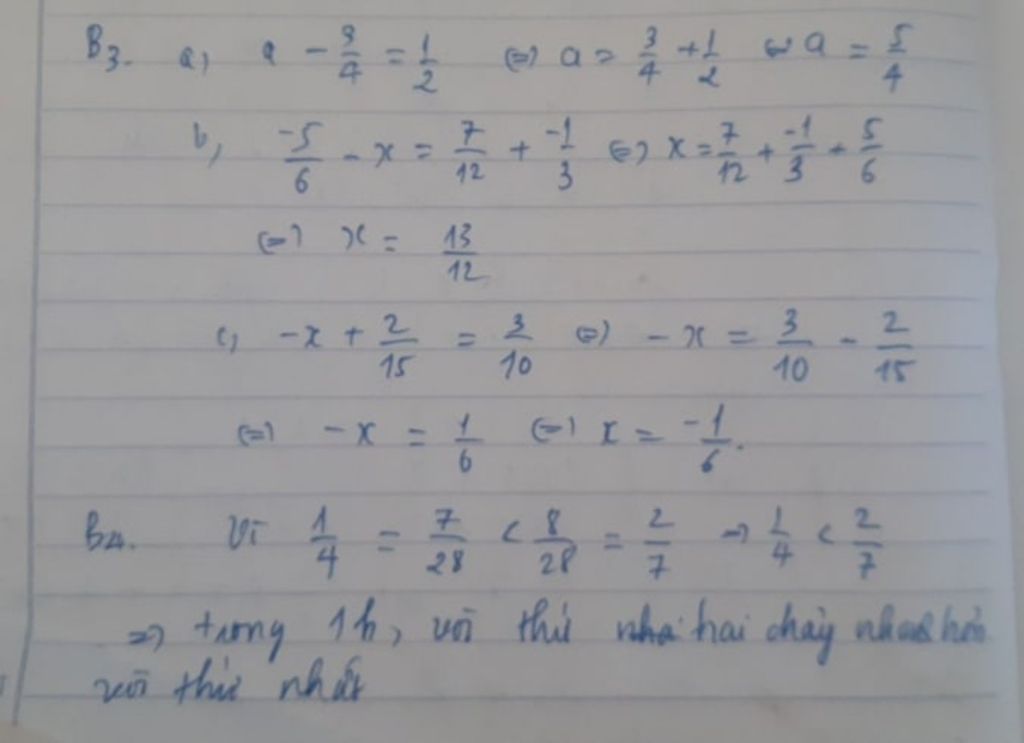 B3. a) a - 3/4 = 1/2 <=> a = 3/4 + 1/2 <=> a = 5/4
b, -5/6 - x = 7/12 + -1/3 <=> x = 7/12 + -1/3 + 5/6
<=> x = 13/12
c, -x + 2/15 = 3/10 <=> -x = 3/10 - 2/15
<=> -x = 1/6 <=> x = -1/6.
B4. Vì 1/4 = 7/28 < 8/28 = 2/7 => 1/4 < 2/7
=> trong 1h, vòi thứ hai chảy nhanh hơn
vòi thứ nhất